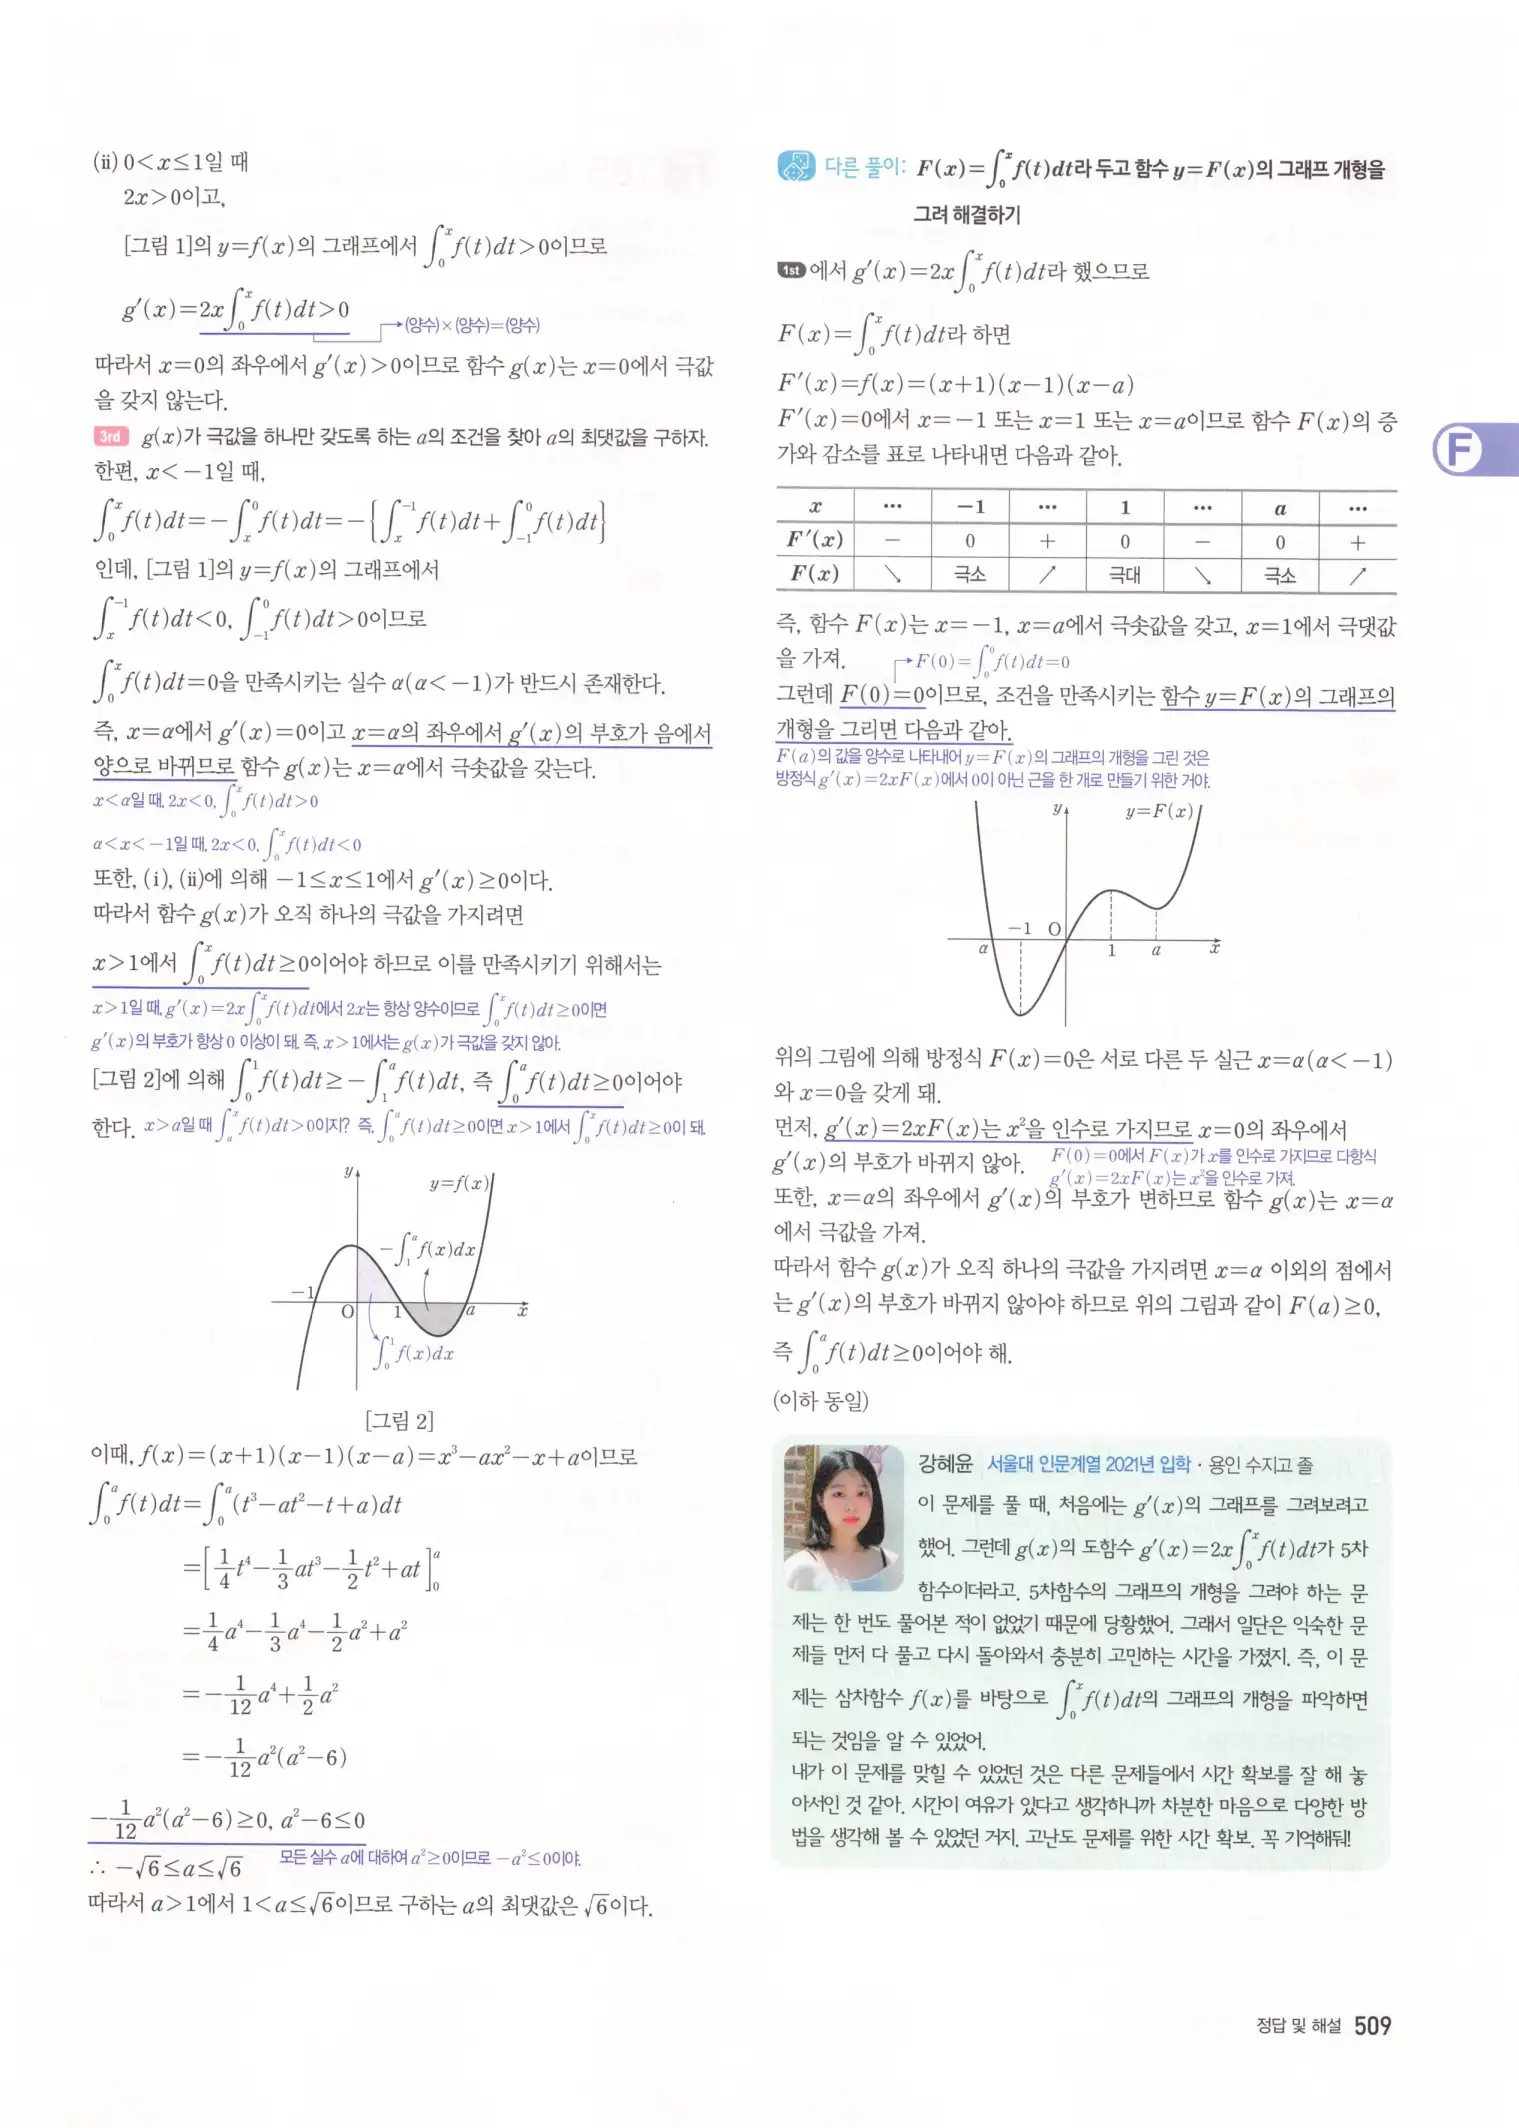 (ii) 0<x≤1일 때
2x>0이고,
[그림 1]의 y=f(x)의 그래프에서 ∫₀ˣ f(t)dt>0이므로
g′(x)=2x∫₀ˣ f(t)dt>0
→(양수)×(양수)=(양수)
따라서 x=0의 좌우에서 g′(x)>0이므로 함수 g(x)는 x=0에서 극값
을 갖지 않는다.
3rd g(x)가 극값을 하나만 갖도록 하는 a의 조건을 찾아 a의 최댓값을 구하자.
한편, x<-1일 때,
∫₀ˣ f(t)dt=-∫ₓ⁰ f(t)dt=-{∫ₓ⁻¹ f(t)dt+∫₋₁⁰ f(t)dt}
인데, [그림 1]의 y=f(x)의 그래프에서
∫ₓ⁻¹ f(t)dt<0, ∫₋₁⁰ f(t)dt>0이므로
∫₀ˣ f(t)dt=0을 만족시키는 실수 α(α<-1)가 반드시 존재한다.
즉, x=α에서 g′(x)=0이고 x=α의 좌우에서 g′(x)의 부호가 음에서
양으로 바뀌므로 함수 g(x)는 x=α에서 극솟값을 갖는다.
x<α일 때, 2x<0, ∫₀ˣ f(t)dt>0
α<x<-1일 때, 2x<0, ∫₀ˣ f(t)dt<0
또한, (i), (ii)에 의해 -1≤x≤1에서 g′(x)≥0이다.
따라서 함수 g(x)가 오직 하나의 극값을 가지려면
x>1에서 ∫₀ˣ f(t)dt≥0이어야 하므로 이를 만족시키기 위해서는
x>1일 때, g′(x)=2x∫₀ˣ f(t)dt에서 2x는 항상 양수이므로 ∫₀ˣ f(t)dt≥0이면
g′(x)의 부호가 항상 0 이상이 돼. 즉, x>1에서는 g(x)가 극값을 갖지 않아.
[그림 2]에 의해 ∫₀¹ f(t)dt≥-∫₁ᵃ f(t)dt, 즉 ∫₀ᵃ f(t)dt≥0이어야
한다. x>a일 때 ∫ₐˣ f(t)dt>0이지? 즉, ∫₀ᵃ f(t)dt≥0이면 x>1에서 ∫₀ˣ f(t)dt≥0이 돼.
y
y=f(x)
-∫₁ᵃ f(x)dx
-1
O 1 a x
∫₀¹ f(x)dx
[그림 2]
이때, f(x)=(x+1)(x-1)(x-a)=x³-ax²-x+a이므로
∫₀ᵃ f(t)dt=∫₀ᵃ (t³-at²-t+a)dt
=[1/4 t⁴-1/3 at³-1/2 t²+at]₀ᵃ
=1/4 a⁴-1/3 a⁴-1/2 a²+a²
=-1/12 a⁴+1/2 a²
=-1/12 a²(a²-6)
-1/12 a²(a²-6)≥0, a²-6≤0
∴ -√6≤a≤√6 모든 실수 a에 대하여 a²≥0이므로 -a²≤0이야.
따라서 a>1에서 1<a≤√6이므로 구하는 a의 최댓값은 √6이다.
다른 풀이: F(x)=∫₀ˣ f(t)dt라 두고 함수 y=F(x)의 그래프 개형을
그려 해결하기
1st 에서 g′(x)=2x∫₀ˣ f(t)dt라 했으므로
F(x)=∫₀ˣ f(t)dt라 하면
F′(x)=f(x)=(x+1)(x-1)(x-a)
F′(x)=0에서 x=-1 또는 x=1 또는 x=a이므로 함수 F(x)의 증
가와 감소를 표로 나타내면 다음과 같아.
x … -1 … 1 … a …
F′(x) - 0 + 0 - 0 +
F(x) ↘ 극소 ↗ 극대 ↘ 극소 ↗
즉, 함수 F(x)는 x=-1, x=a에서 극솟값을 갖고, x=1에서 극댓값
을 가져. →F(0)=∫₀⁰ f(t)dt=0
그런데 F(0)=0이므로, 조건을 만족시키는 함수 y=F(x)의 그래프의
개형을 그리면 다음과 같아.
F(a)의 값을 양수로 나타내어 y=F(x)의 그래프의 개형을 그린 것은
방정식 g′(x)=2xF(x)에서 0이 아닌 근을 한 개로 만들기 위한 거야.
y y=F(x)
-1 O
α 1 a x
위의 그림에 의해 방정식 F(x)=0은 서로 다른 두 실근 x=α(α<-1)
와 x=0을 갖게 돼.
먼저, g′(x)=2xF(x)는 x²을 인수로 가지므로 x=0의 좌우에서
g′(x)의 부호가 바뀌지 않아. F(0)=0에서 F(x)가 x를 인수로 가지므로 다항식
g′(x)=2xF(x)는 x²을 인수로 가져.
또한, x=α의 좌우에서 g′(x)의 부호가 변하므로 함수 g(x)는 x=α
에서 극값을 가져.
따라서 함수 g(x)가 오직 하나의 극값을 가지려면 x=α 이외의 점에서
는 g′(x)의 부호가 바뀌지 않아야 하므로 위의 그림과 같이 F(a)≥0,
즉 ∫₀ᵃ f(t)dt≥0이어야 해.
(이하 동일)
강혜윤 서울대 인문계열 2021년 입학 · 용인 수지고 졸
이 문제를 풀 때, 처음에는 g′(x)의 그래프를 그려보려고
했어. 그런데 g(x)의 도함수 g′(x)=2x∫₀ˣ f(t)dt가 5차
함수이더라고. 5차함수의 그래프의 개형을 그려야 하는 문
제는 한 번도 풀어본 적이 없었기 때문에 당황했어. 그래서 일단은 익숙한 문
제들 먼저 다 풀고 다시 돌아와서 충분히 고민하는 시간을 가졌지. 즉, 이 문
제는 삼차함수 f(x)를 바탕으로 ∫₀ˣ f(t)dt의 그래프의 개형을 파악하면
되는 것임을 알 수 있었어.
내가 이 문제를 맞힐 수 있었던 것은 다른 문제들에서 시간 확보를 잘 해 놓
아서인 것 같아. 시간이 여유가 있다고 생각하니까 차분한 마음으로 다양한 방
법을 생각해 볼 수 있었던 거지. 고난도 문제를 위한 시간 확보. 꼭 기억해둬!
F
정답 및 해설 509